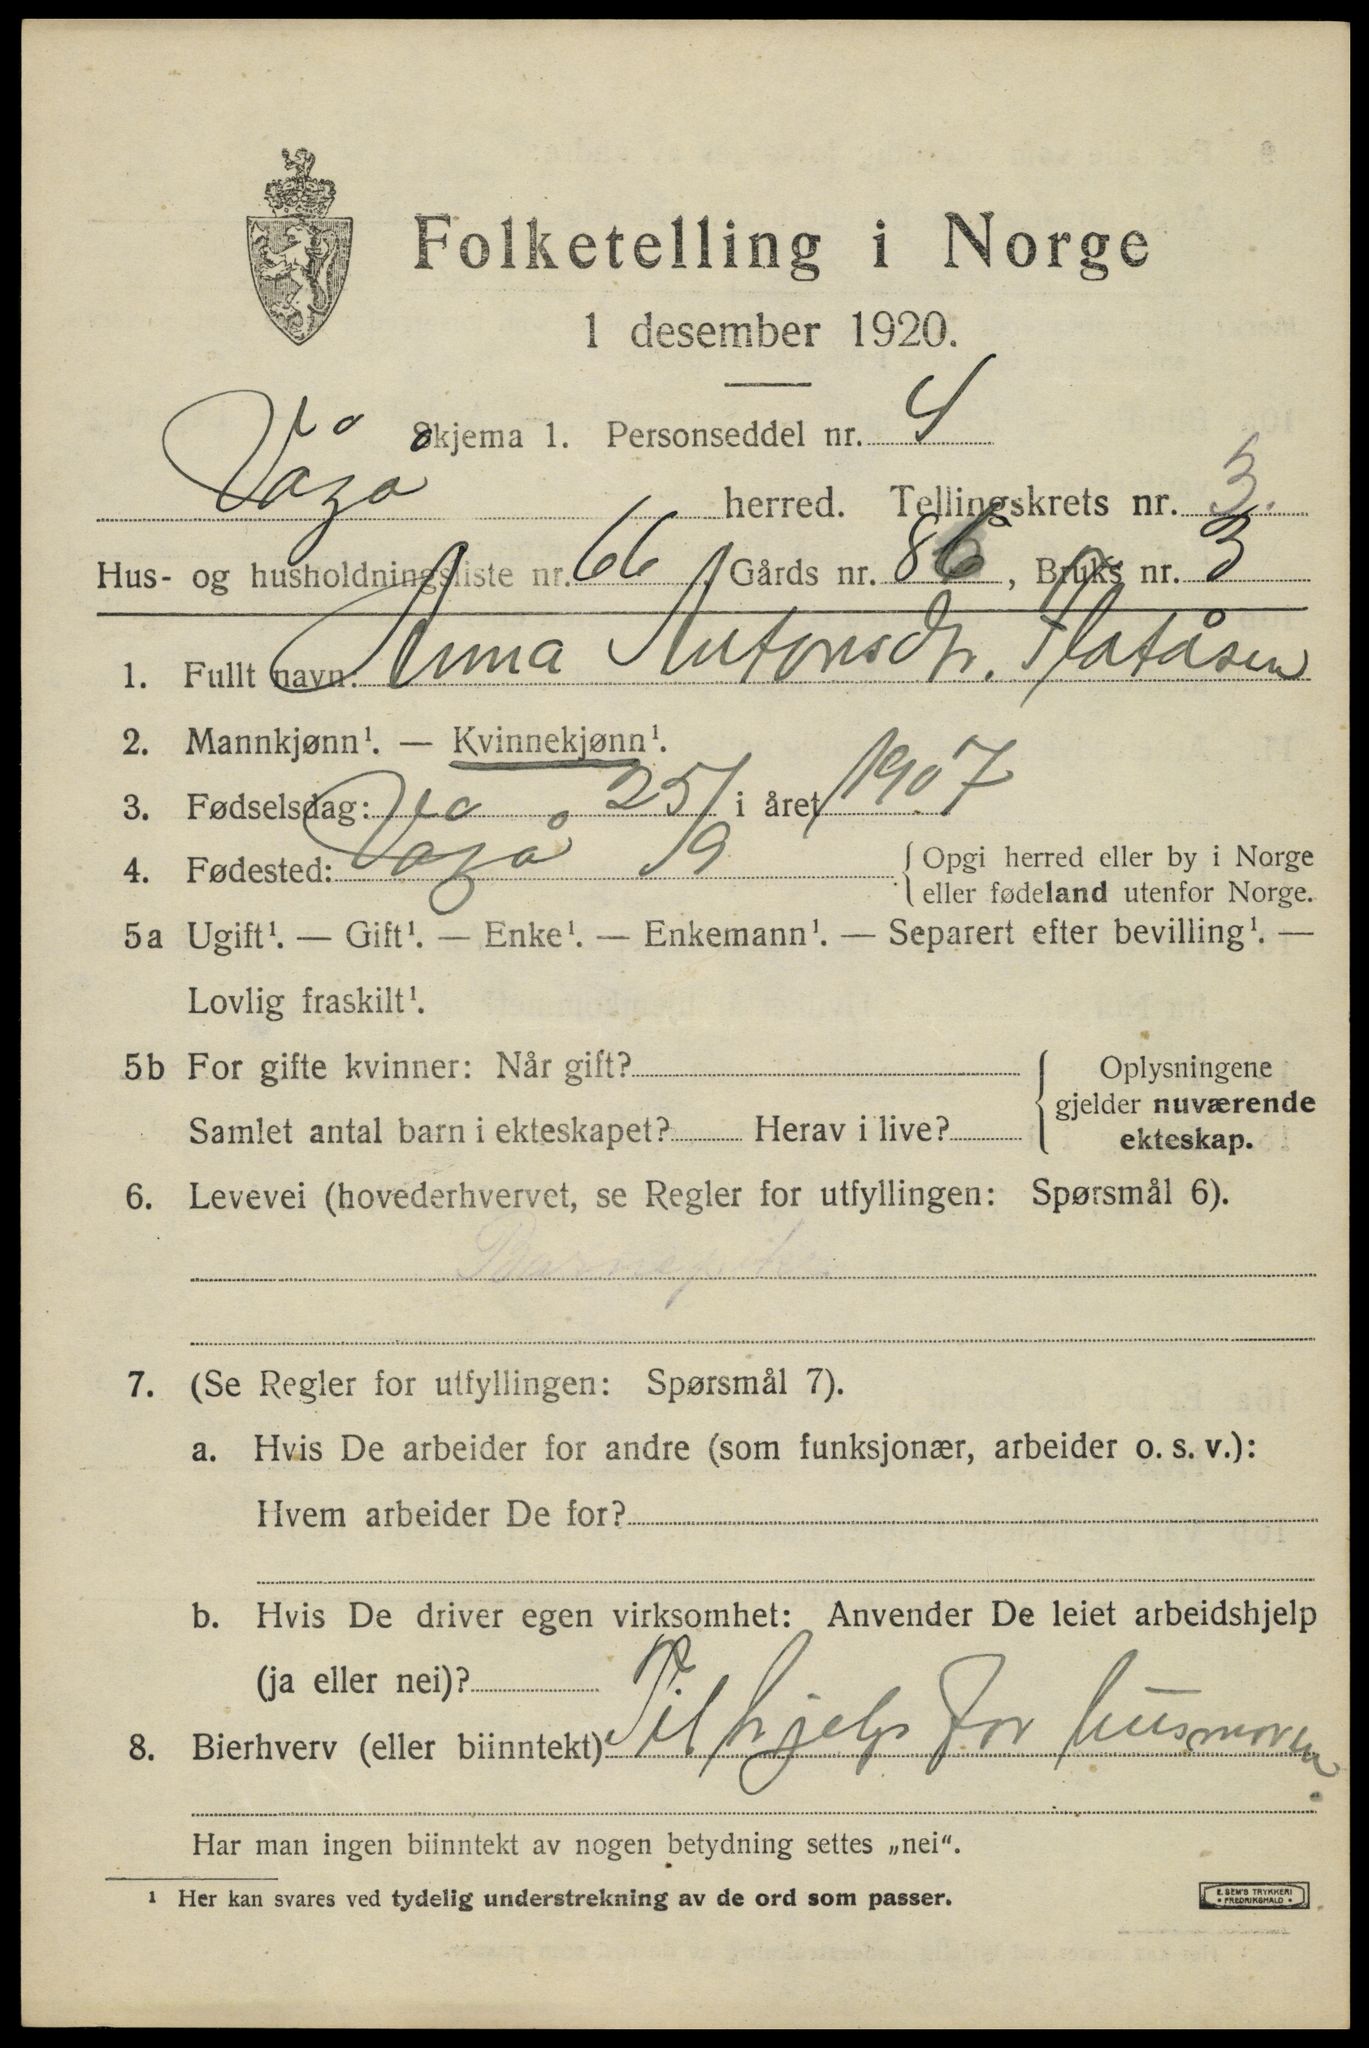 Folketelling i Norge
1 desember 1920.
Skjema 1. Personseddel nr. 4
Vågå herred. Tellingskrets nr. 3.
Hus- og husholdningsliste nr. 66 Gårds nr. 86, Bruks nr. 3
1. Fullt navn: Anna Antonsdtr. Flatåsen
2. Mannkjønn¹. — Kvinnekjønn¹.
3. Fødselsdag: 25/9 i året 1907
4. Fødested: Vågå { Opgi herred eller by i Norge
eller fødeland utenfor Norge.
5a Ugift¹. — Gift¹. — Enke¹. — Enkemann¹. — Separert efter bevilling¹. —
Lovlig fraskilt¹.
5b For gifte kvinner: Når gift? { Oplysningene
gjelder nuværende
Samlet antal barn i ekteskapet? Herav i live? ekteskap.
6. Levevei (hovederhvervet, se Regler for utfyllingen: Spørsmål 6).
Barnepike
7. (Se Regler for utfyllingen: Spørsmål 7).
a. Hvis De arbeider for andre (som funksjonær, arbeider o. s. v.):
Hvem arbeider De for?
b. Hvis De driver egen virksomhet: Anvender De leiet arbeidshjelp
(ja eller nei)?
8. Bierhverv (eller biinntekt) Til hjelp for husmoren.
Har man ingen biinntekt av nogen betydning settes „nei“.
¹ Her kan svares ved tydelig understrekning av de ord som passer.
E. SEM'S TRYKKERI
• FREDRIKSHALD •